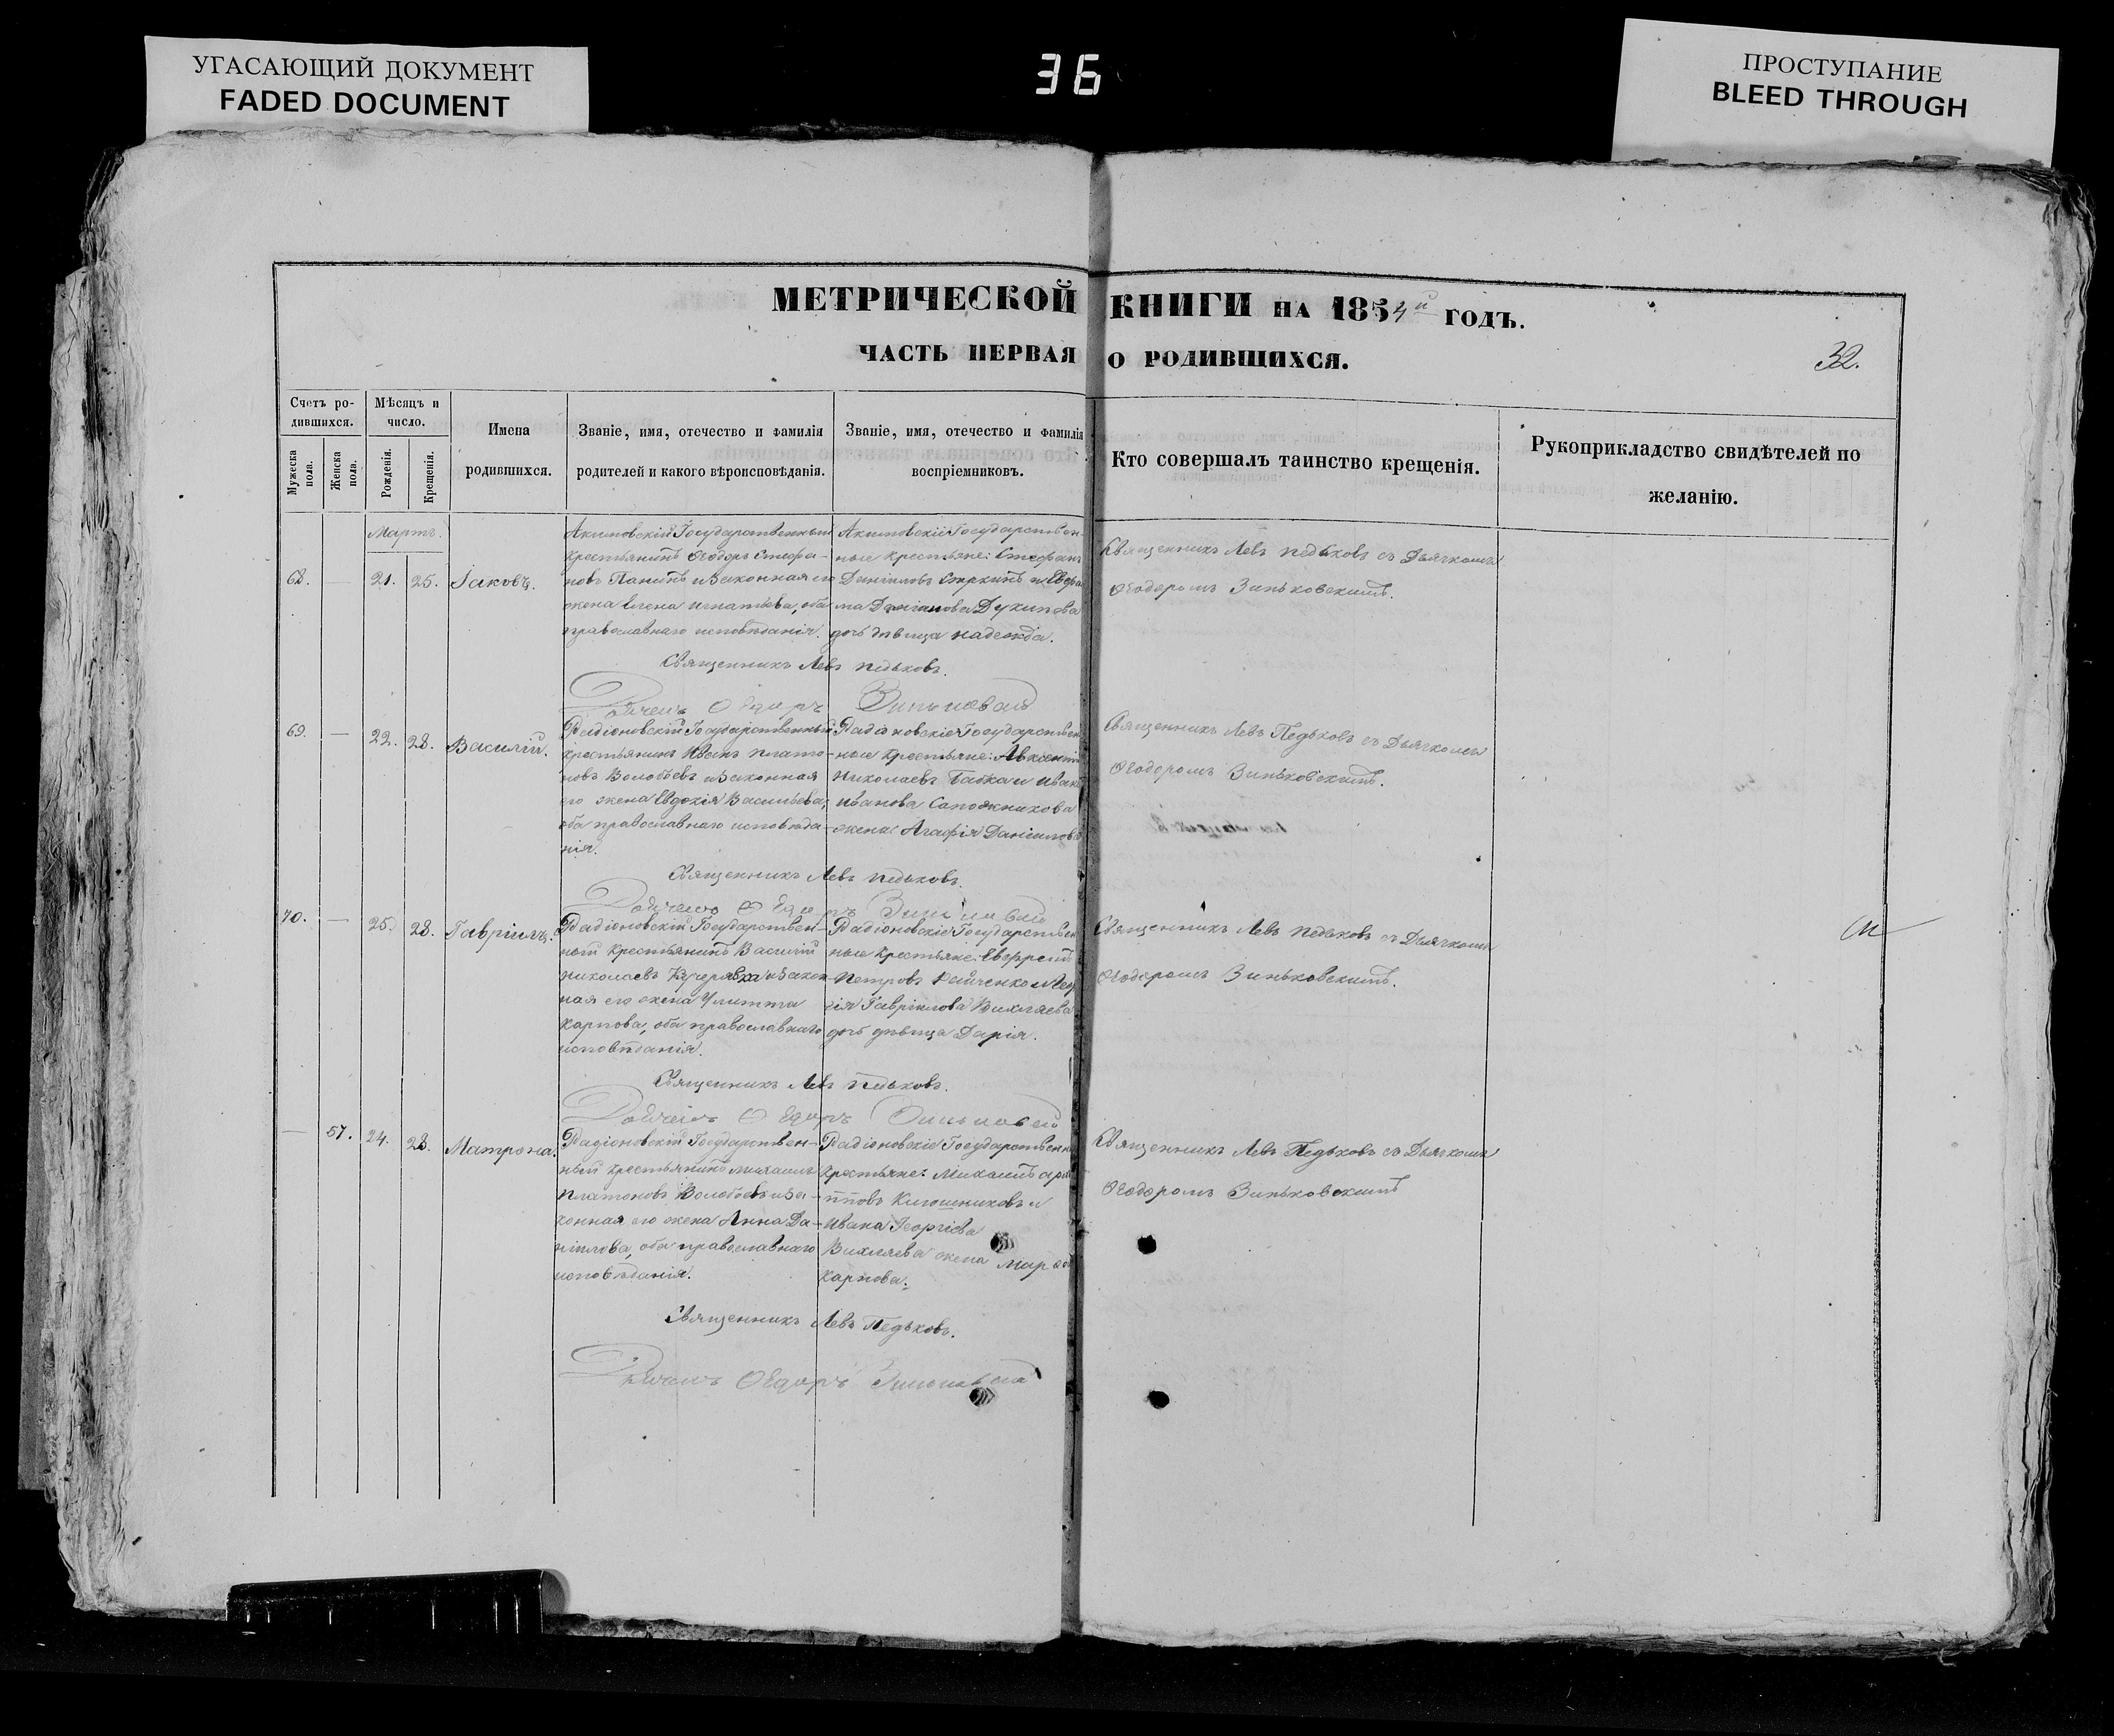 УГАСАЮЩИЙ ДОКУМЕНТ
FADED DOCUMENT
36
ПРОСТУПАНИЕ
BLEED THROUGH
МЕТРИЧЕСКОЙ КНИГИ НА 1854й ГОДЪ.
ЧАСТЬ ПЕРВАЯ О РОДИВШИХСЯ.
32.
Счетъ ро-
дившихся.
Мужеска пола.
Женска пола.
Мѣсяцъ и
число.
Рожденія.
Крещенія.
Имена
родившихся.
Званіе, имя, отечество и фамилія
родителей и какого вѣроисповѣданія.
Званіе, имя, отечество и фамилія
воспріемниковъ.
Кто совершалъ таинство крещенія.
Рукоприкладство свидѣтелей по
желанію.
Мартъ.
68. — 21. 25. Іаковъ.
Акимовскій Государственный
крестьянинъ Ѳеодоръ Стефа-
новъ Панинъ и законная его
жена Елена Игнатьева, оба
православнаго исповѣданія.
Акимовскіе Государствен-
ные крестьяне: Стефанъ
Даніиловъ и
дочь дѣвица Надежда.
Священникъ Левъ Педьковъ съ Дьячкомъ
Ѳеодоромъ Зиньковскимъ.
Священникъ Левъ Педьковъ.
69. — 22. 28. Василій.
Радіоновскій Государственный
крестьянинъ Иванъ Плато-
новъ Волобоевъ и законная
его жена Евдокія Васильева,
оба православнаго исповѣда-
нія.
Радіоновскіе Государствен
ные крестьяне: Авксентій
Николаевъ и Ивана
Иванова Сапожникова
жена Агафія Даніилова
Священникъ Левъ Педьковъ съ Дьячкомъ
Ѳеодоромъ Зиньковскимъ.
Священникъ Левъ Педьковъ.
70. — 25. 28. Гавріилъ.
Радіоновскій Государствен-
ный крестьянинъ Василій
Николаевъ и закон-
ная его жена Улитта
Карпова, оба православнаго
исповѣданія.
Радіоновскіе Государствен
ные крестьяне: Евфремъ
Петровъ
Гавріилова Вихляева
дочь дѣвица Дарія.
Священникъ Левъ Педьковъ съ Дьячкомъ
Ѳеодоромъ Зиньковскимъ.
Священникъ Левъ Педьковъ.
— 57. 24. 28. Матрона.
Радіоновскій Государствен-
ный крестьянинъ Михаилъ
Платоновъ Волобоевъ и за-
конная его жена Анна Да-
ніилова, оба православнаго
исповѣданія.
Радіоновскіе Государственн
крестьяне: Михаилъ
и
Ивана Георгіева
Вихляева жена
Карпова.
Священникъ Левъ Педьковъ съ Дьячкомъ
Ѳеодоромъ Зиньковскимъ
Священникъ Левъ Педьковъ.